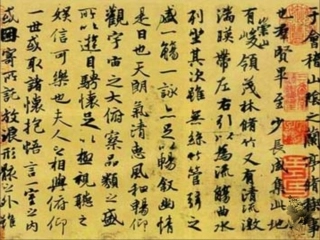 于會稽山陰之蘭亭脩稧
也群賢畢至少長咸集此地
有崇山峻領茂林脩竹又有清流激
湍暎帶左右引以為流觴曲水
列坐其次雖無絲竹管弦之
盛一觴一詠亦足以暢敘幽情
是日也天朗氣清惠風和暢仰
觀宇宙之大俯察品類之盛
所以遊目騁懷足以極視聽之
娛信可樂也夫人之相與俯仰
一世或取諸懷抱悟言一室之內
或因寄所託放浪形骸之外雖